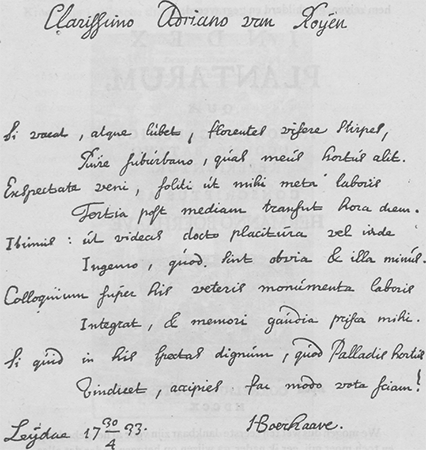 Clarissimo Adriano van Roÿen
Si vacat, atque lubet, florentes visere stirpes,
Rure suburbano, quas meus hortus alit.
Exspectate veni, soliti ut mihi meta laboris
Tertia post mediam transiit hora diem.
Ibimus: ut videas docto placitura vel inde
Ingenio, quod sint obvia & illa minus.
Colloquium super his veteris monumenta laboris
Integrat, & memori gaudia prisca mihi.
Si quid in his spectas dignum, quod Palladis hortus
Vindicet, accipies fac modo vota sciam!
Leÿdae 17 30/4 33. HBoerhaave.
INDEX
PLANTARUM,
QUÆ